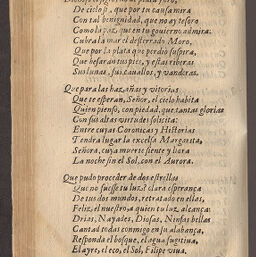 De cielo si, que por tu causa mira
Con tal benignidad, que no ay tesoro
Como la paz, que en tu gouierno admira:
Cubra la mar el desterrado Moro,
Que por la plata que perdio suspira,
Que besaran tus pies, y estas riberas
Sus lunas, sus cauallos, y vanderas.
Que para las hazañas y vitorias
Que te esperan, Señor, el cielo habita
Quien pienso, con piedad, que tantas glorias
Con sus altas virtudes solicita:
Entre cuyas Coronicas y Historias
Tendra lugar la excelsa Margarita,
Señora, cuya muerte siente y llora
La noche sin el Sol, con el Aurora.
Que pudo proceder de dos estrellas
Que no fuesse tu luz? clara esperança
De tus dos mundos, retratado en ellas,
Feliz, el nuestro, a quien tu luz alcança:
Drias, Nayades, Diosas, Ninfas bellas
Cantad todas conmigo en su alabança,
Responda el bosque, el agua fugitiua,
El ayre, el eco, el Sol, Filipe viua.